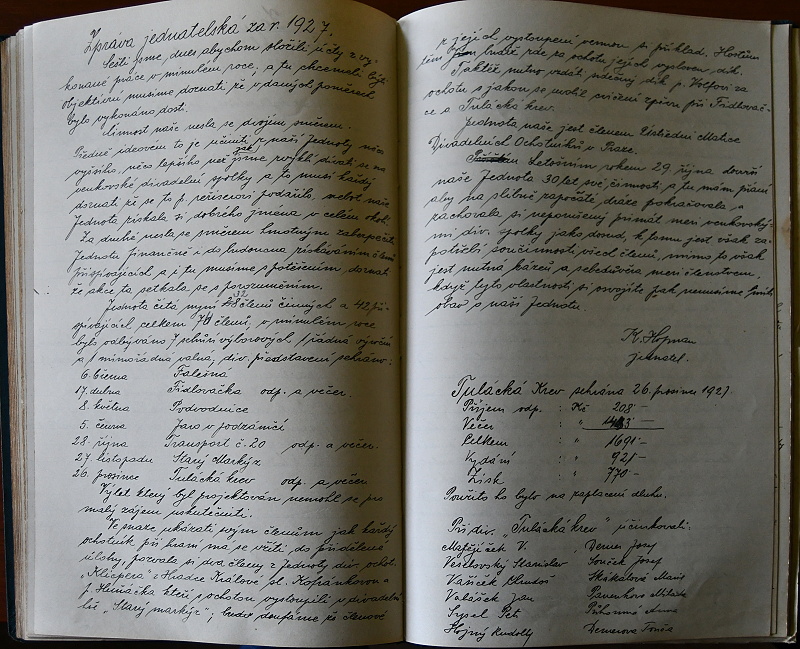 Zpráva jednatelská za r. 1927.
Sešli jsme dnes abychom složili účty z vy-
konané práce v minulém roce, a tu chceme-li býti
objektivní musíme doznati že v daných poměrech
bylo vykonáno dosti.
Činnost naše nesla se dvojím směrem.
Předně ideovém to je učiniti z naší Jednoty něco
vyššího, něco lepšího než jsme zvyklí dívati se na
venkovské divadelní spolky a to musí každý
doznati že se to p. režiserovi podařilo, neboť naše
Jednota získala si dobrého jména v celém okolí.
Za druhé nesla se směrem hmotným zabezpečiti
Jednotu finančně i do budoucna získáváním členů
přispívajících a i tu musíme s potěšením doznat
že akce ta setkala se s porozuměním.
Jednota čítá nyní členů činných a 42 při-
spívajících celkem členů, v minulém roce
bylo odbýváno 7 schůzí výborových 1 řádná výroční
a 1 mimořádná valná; div. představení sehráno:
6. března Falešná
17. dubna Fidlovačka odp. a večer.
8. května Podvodnice
5. června Jaro v podzámčí
28. října Transport č. 20 odp. a večer.
27. listopadu Starý Markýz
26. prosince Tulácká krev odp. a večer
Výlet který byl projektován nemohl se pro
malý zájem uskutečniti.
Ve snaze ukázati svým členům jak každý
ochotník při hraní má se vžíti do přidělené
úlohy, pozvala si dva členy z Jednoty div. ochot.
"Klicpera" z Hradce Králové sl. Kopřánkovou a
p. Huňáčka kteří s ochotou vystoupili v divadel-
ní "Starý markýz"; doufáme že členové
z jejich vystoupení vezmou si příklad. Hostům
těm budiž zde za ochotu jejich vysloven dík.
Taktéž nutno vzdát srdečný dík p. Volfovi za
ochotu s jakou se uvolil cvičení zpěvu při Fidlovač-
ce a Tulácká krev.
Jednota naše jest členem Ústřední Matice
Divadelních Ochotníků v Praze.
Letošním rokem 29 října dovrší
naše Jednota 30 let své činnosti a tu mám přání
aby na slibně započaté dráze pokračovala a
zachovala si neporušený primát mezi venkovský-
mi div. spolky jako dosud, k tomu jest však za-
potřebí součinnosti všech členů, mimo to však
jest nutna kázeň a sebedůvěra mezi členstvem,
když tyto vlastnosti si osvojíte pak nemusíme míti
obav o naši Jednotu.
K. Hofman
jednatel.
Tulácká Krev sehrána 26. prosince 1927
Příjem odp. : Kč 208 –
Večer : "
Celkem : " 1691 –
Vydání : " 921 –
Zisk : " 770 –
Použito ho bylo na zaplacení dluhu.
Při div. "Tulácká krev" účinkovali:
Matějíček V. Josef
Veselovský Stanislav Souček Josef
Vašíček Skákalová Marie
Valášek Jan
Sysel Petr Anna
Hojný Rudolf